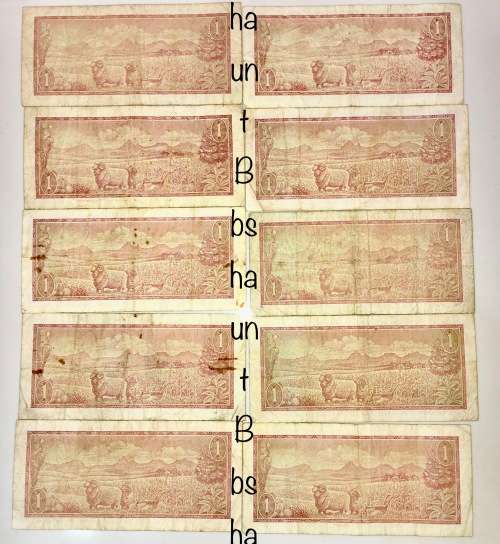 1 ha 1
1 un 1
1 t 1
1 B 1
1 bs 1
1 ha 1
1 un 1
1 t 1
1 B 1
1 bs 1
ha